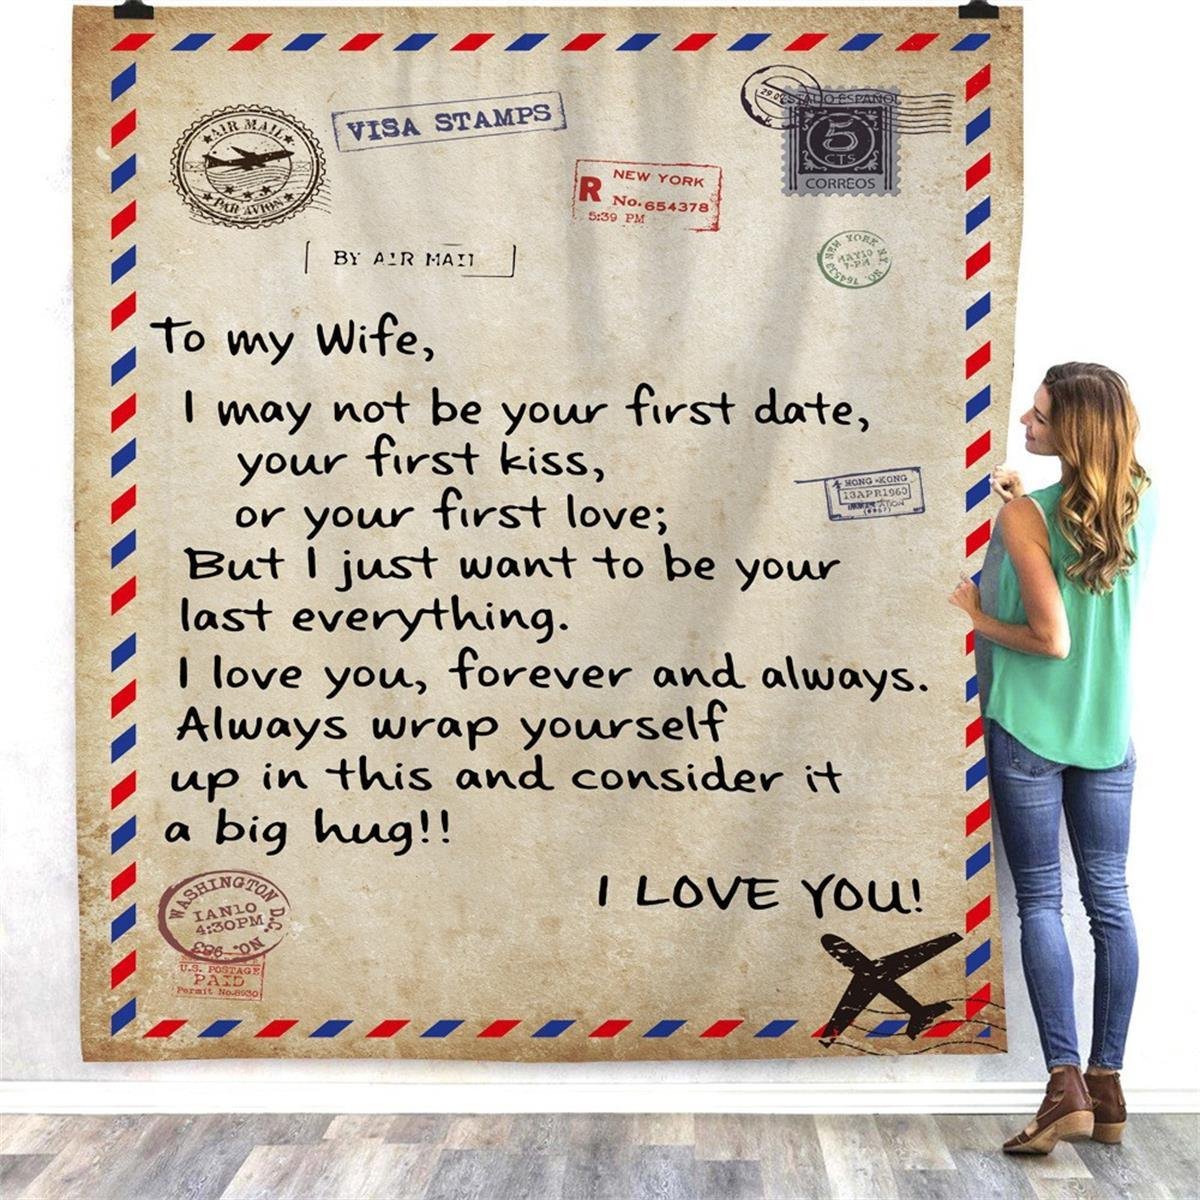 AIR MAIL
PAR AVION
VISA STAMPS
ESTADO ESPAÑOL
5
CTS
CORREOS
R NEW YORK
No. 654378
5:39 PM
BY AIR MAIL
NEW YORK N.Y.
MAY10
7-PM
To my Wife,
I may not be your first date,
your first kiss,
or your first love;
But I just want to be your
last everything.
I love you, forever and always.
Always wrap yourself
up in this and consider it
a big hug!!
I LOVE YOU!
HONG-KONG
13APR1960
WASHINGTON D.C.
IAN10
4:30PM
NO. 983
U.S. POSTAGE
PAID
Permit No.8930